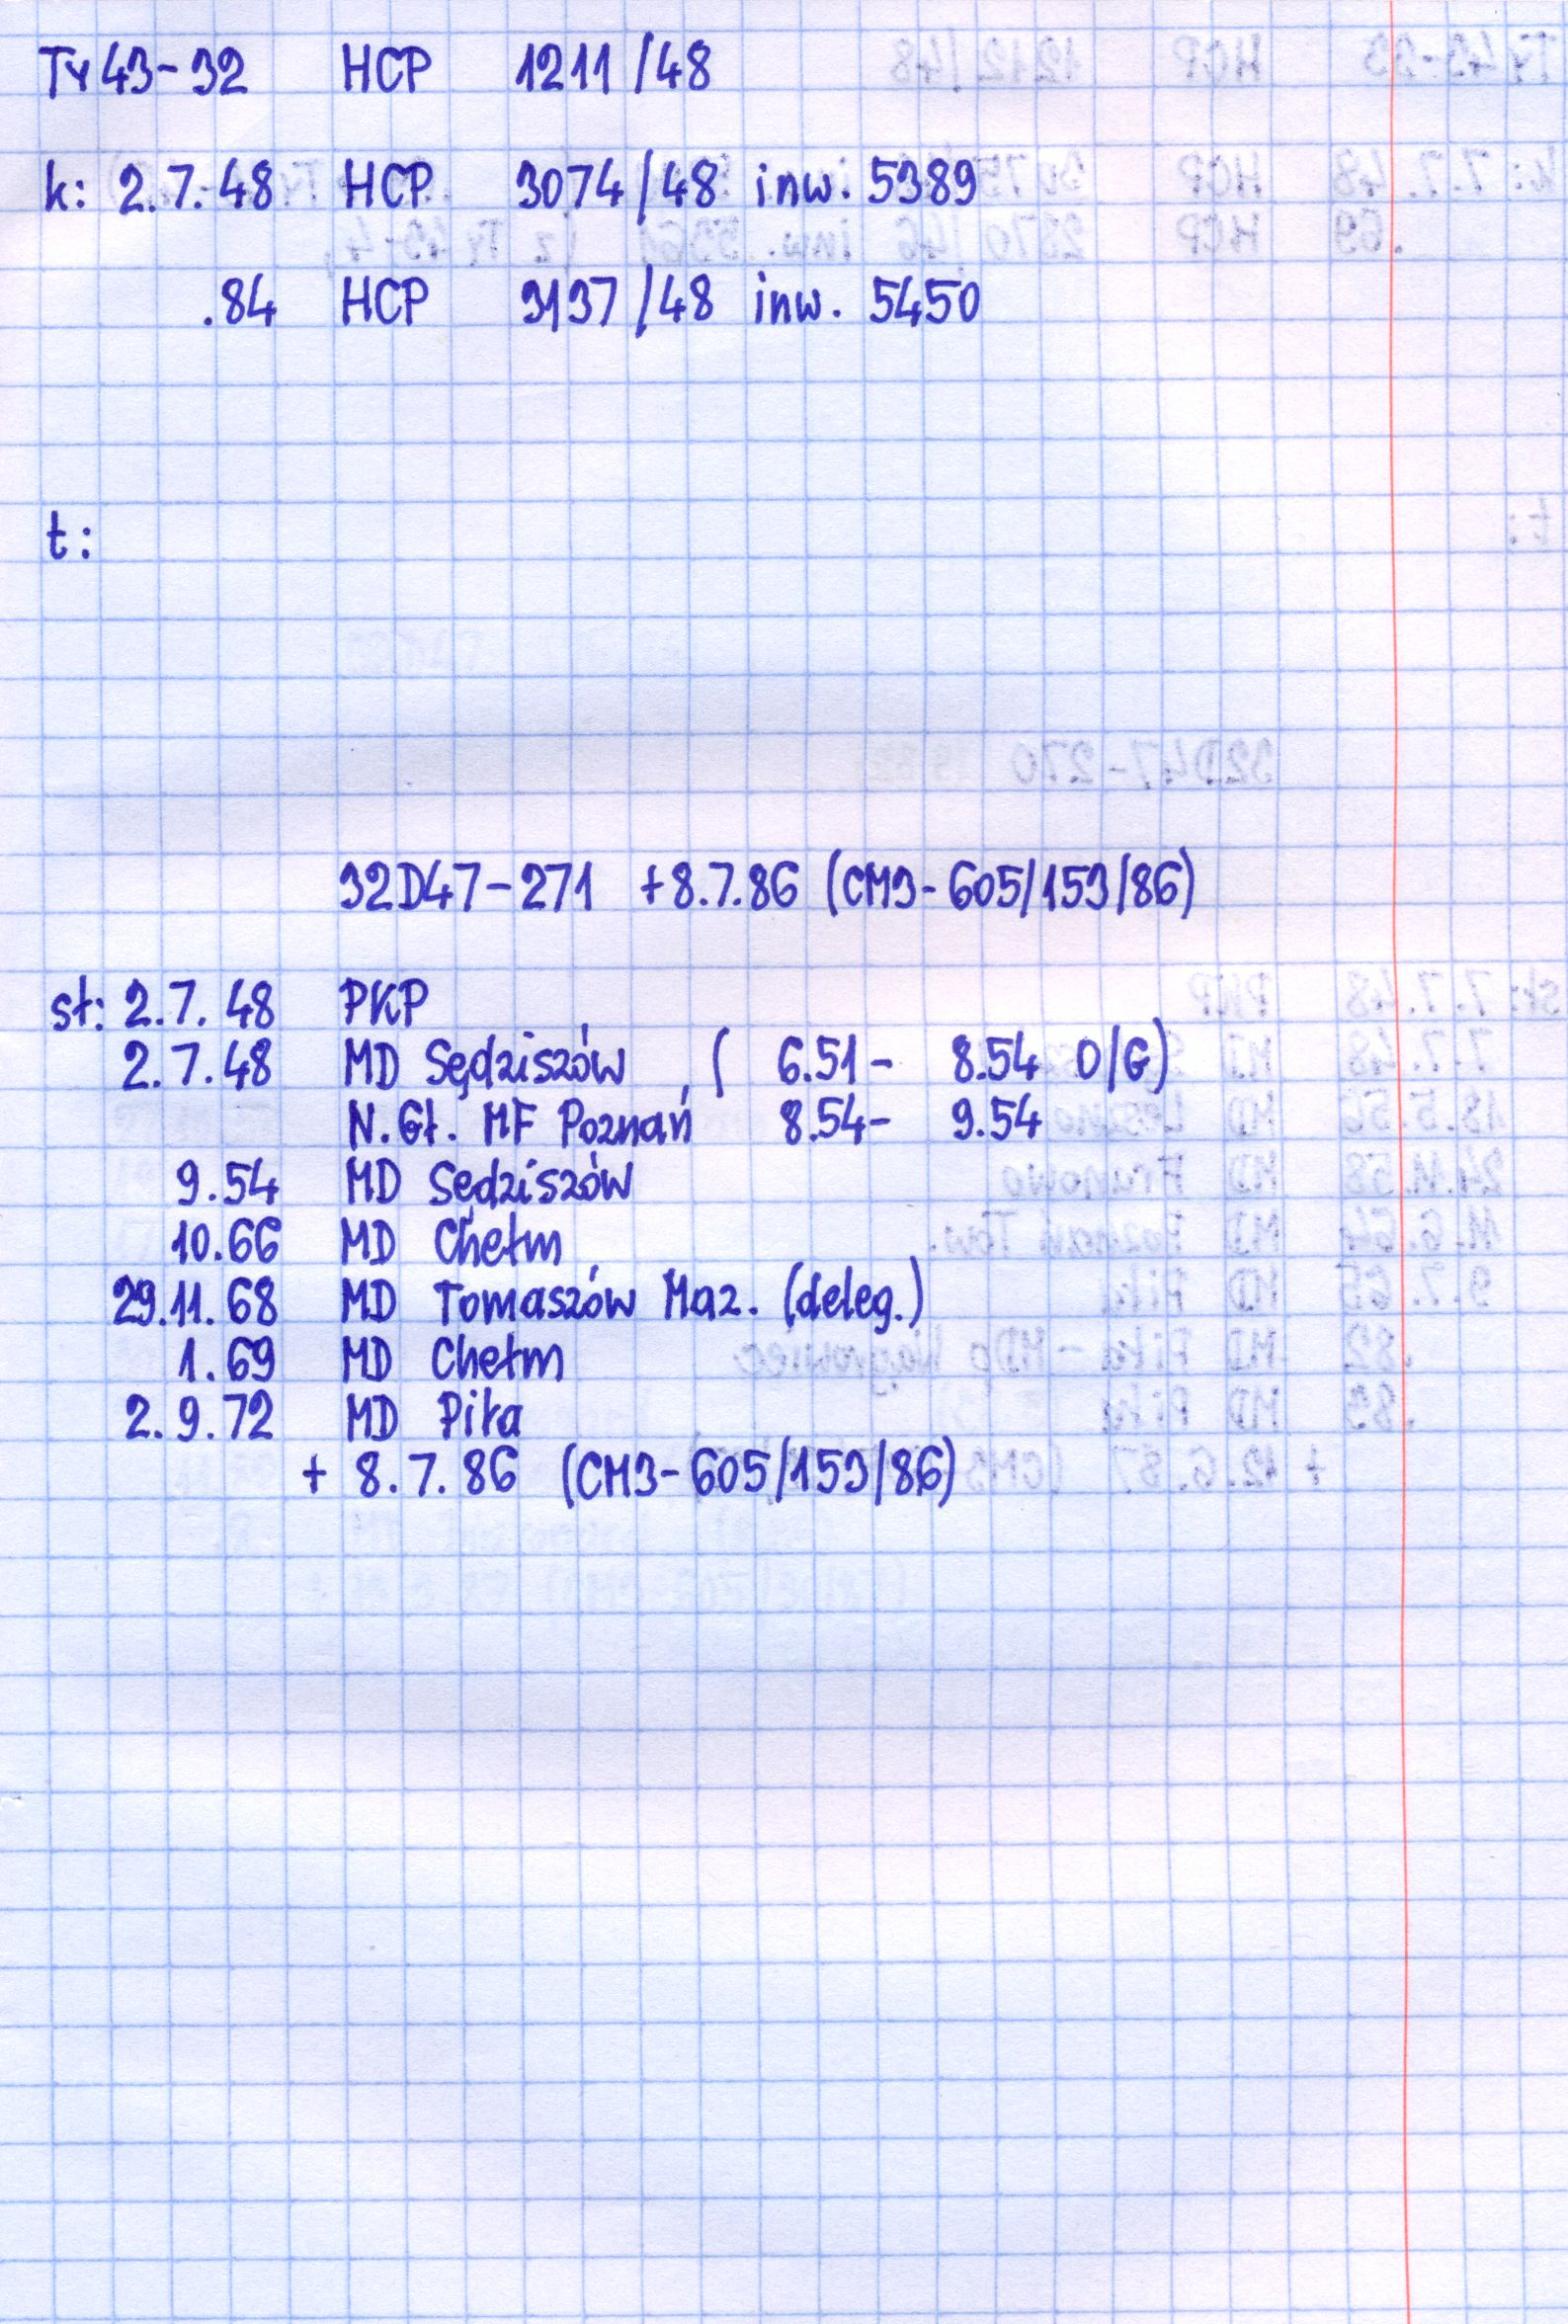 Ty43-32 HCP 1211/48
k: 2.7.48 HCP 3074/48 inw. 5389
.84 HCP 3137/48 inw. 5450
t:
32D47-271 +8.7.86 (CM3-605/153/86)
st: 2.7.48 PKP
2.7.48 MD Sędziszów, ( 6.51- 8.54 O/G)
N.Gł. MF Poznań 8.54- 9.54
9.54 MD Sędziszów
10.66 MD Chełm
29.11.68 MD Tomaszów Maz. (deleg.)
1.69 MD Chełm
2.9.72 MD Piła
+ 8.7.86 (CM3-605/153/86)